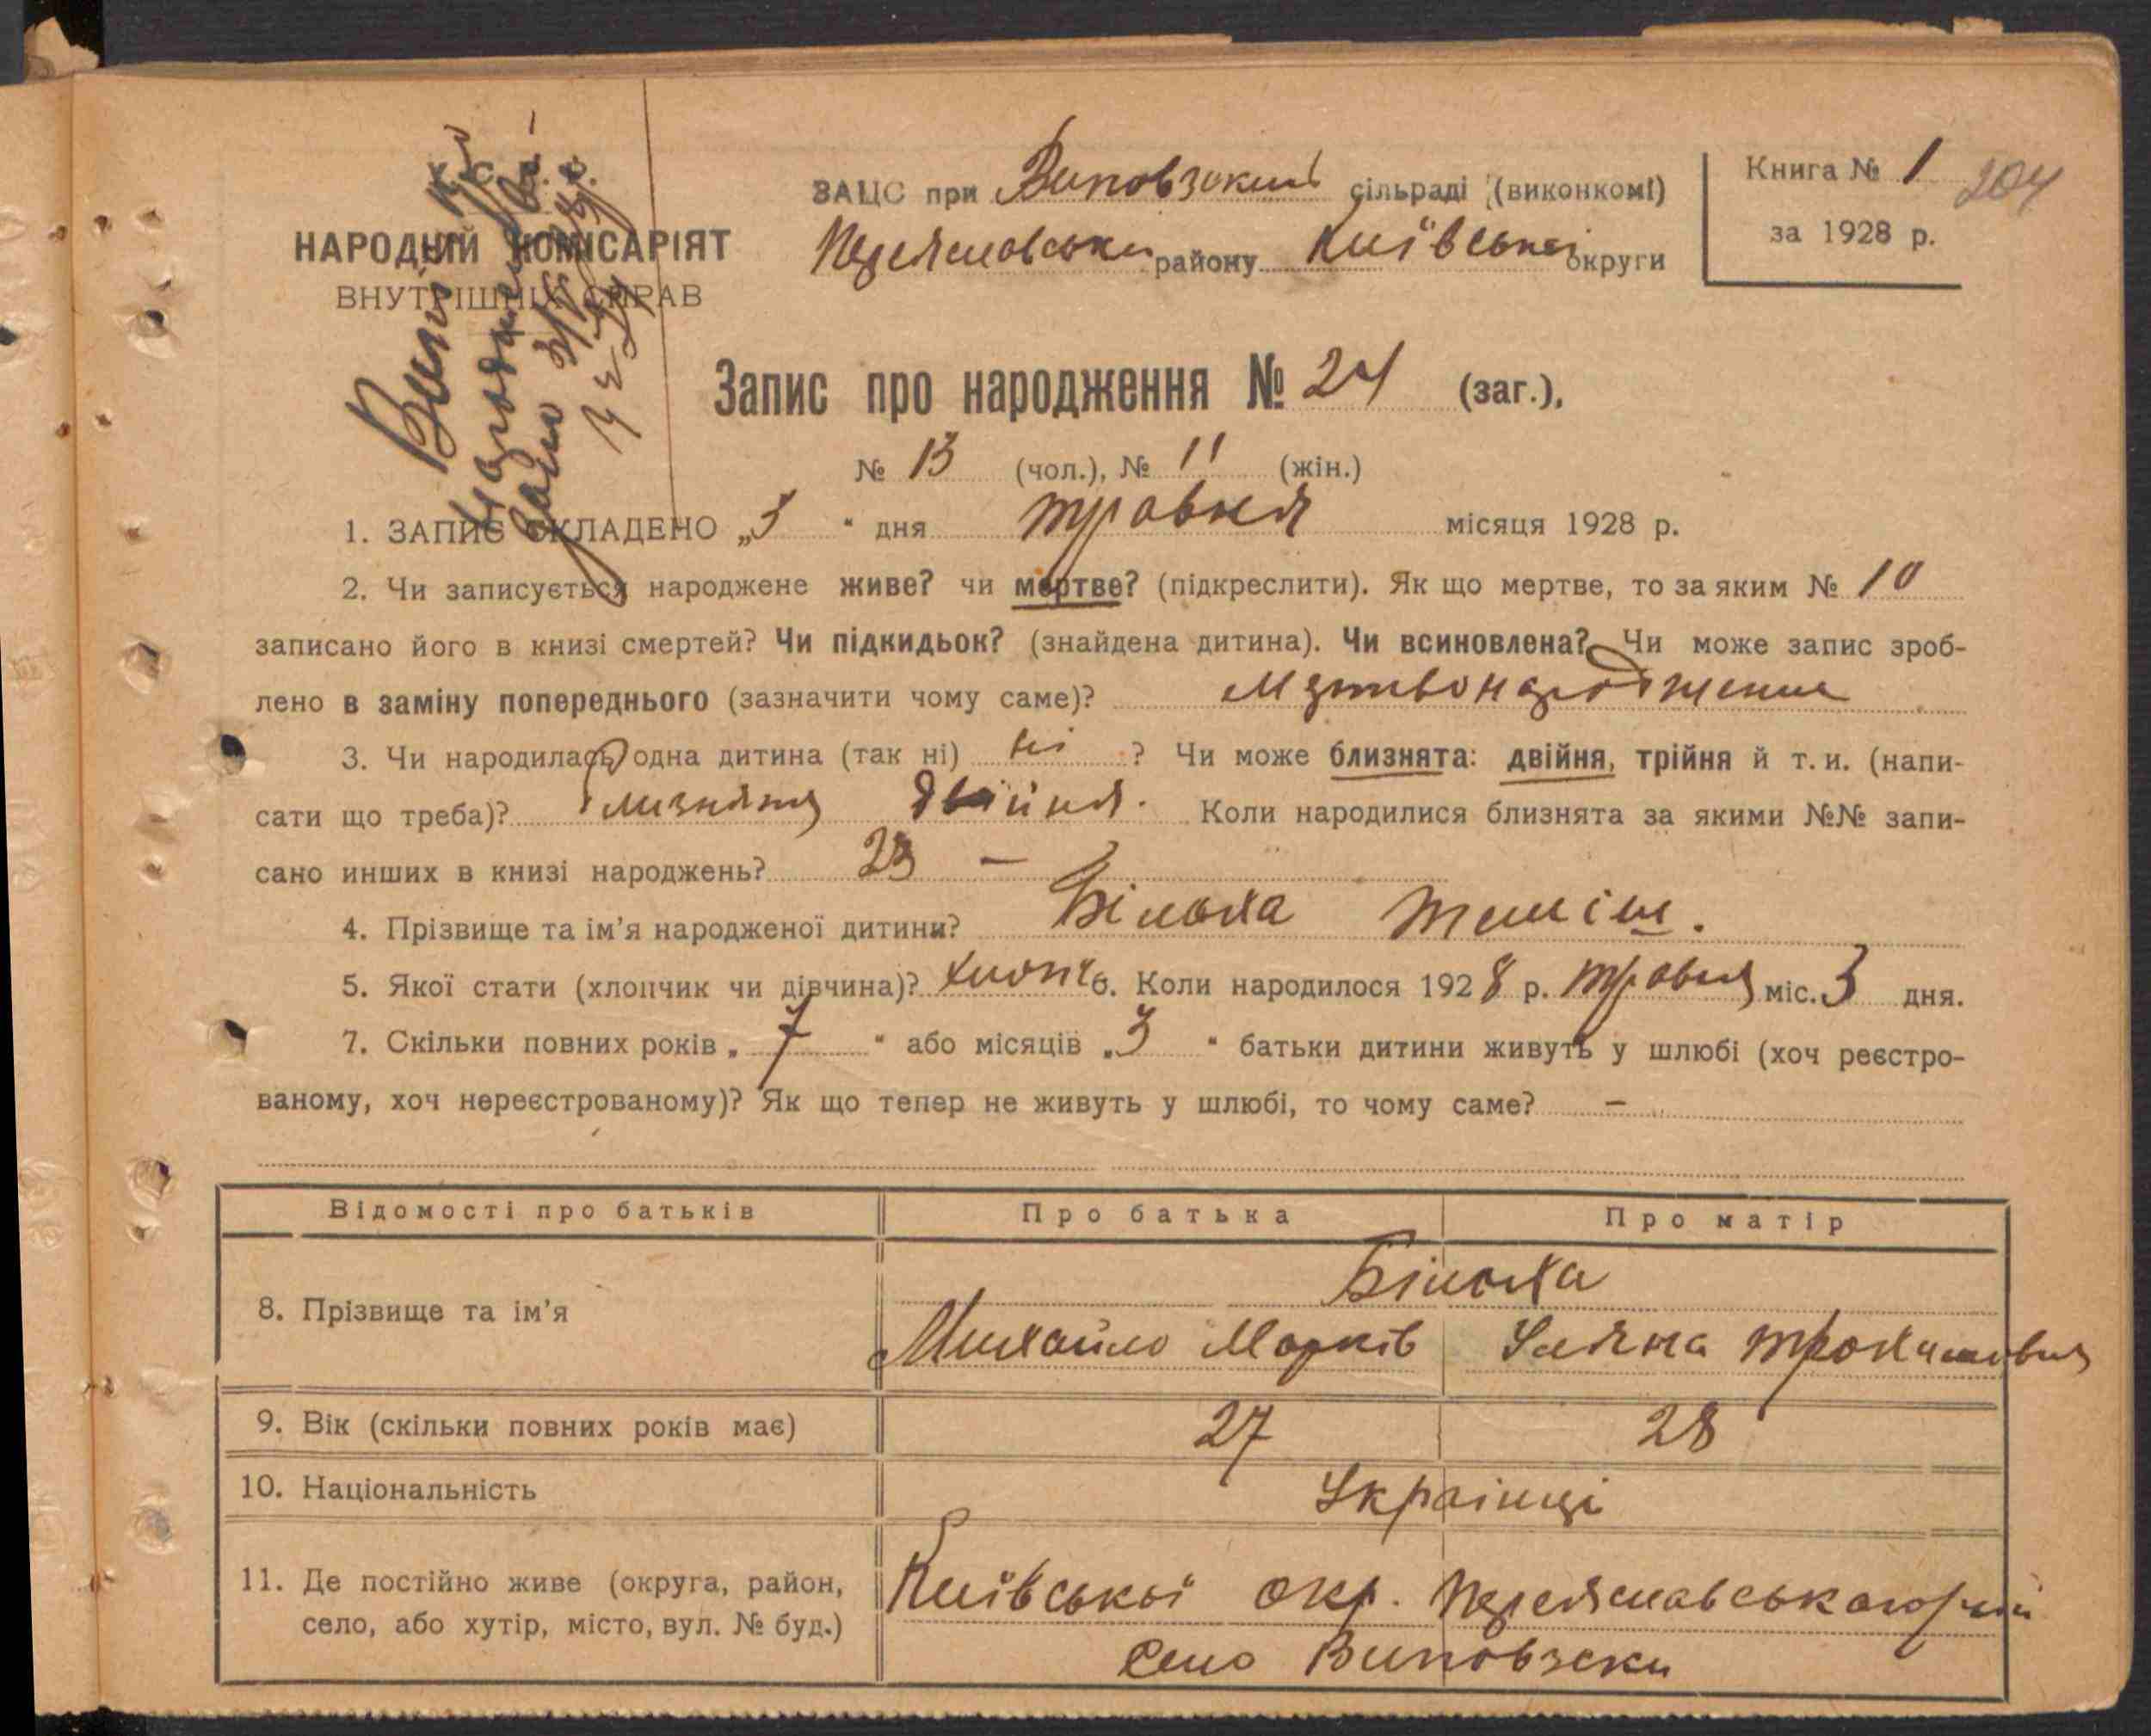 У.С.Р.Р.
НАРОДНІЙ КОМІСАРІЯТ
ВНУТРІШНІХ СПРАВ
ЗАЦС при Виповзький сільраді (виконкомі)
Переяславськи району Київської округи
Книга № 1 204
за 1928 р.
Запис про народження № 24 (заг.),
№ 13 (чол.), № 11 (жін.)
1. ЗАПИС СКЛАДЕНО „3 “ дня травня місяця 1928 р.
2. Чи записується народжене живе? чи мертве? (підкреслити). Як що мертве, то за яким № 10
записано його в книзі смертей? Чи підкидьок? (знайдена дитина). Чи всиновлена? Чи може запис зроб-
лено в заміну попереднього (зазначити чому саме)? Мертвонарожение
3. Чи народилась одна дитина (так ні) ні ? Чи може близнята: двійня, трійня й т. и. (напи-
сати що треба)? Близнята двійня. Коли народилися близнята за якими №№ запи-
сано инших в книзі народжень? 23 —
4. Прізвище та ім’я народженої дитини? Більоха
5. Якої стати (хлопчик чи дівчина)? хлопч 6. Коли народилося 1928 р. травня міс. 3 дня.
7. Скільки повних років „ 7 “ або місяців „3 “ батьки дитини живуть у шлюбі (хоч реєстро-
ваному, хоч нереєстрованому)? Як що тепер не живуть у шлюбі, то чому саме? —
Відомості про батьків Про батька Про матір
8. Прізвище та ім’я Більоха
Михайло Марків Уляна Трохимовна
9. Вік (скільки повних років має) 27 28
10. Національність Українці
11. Де постійно живе (округа, район, Київської окр. Переяславського рай
село, або хутір, місто, вул. № буд.) село Виповзски